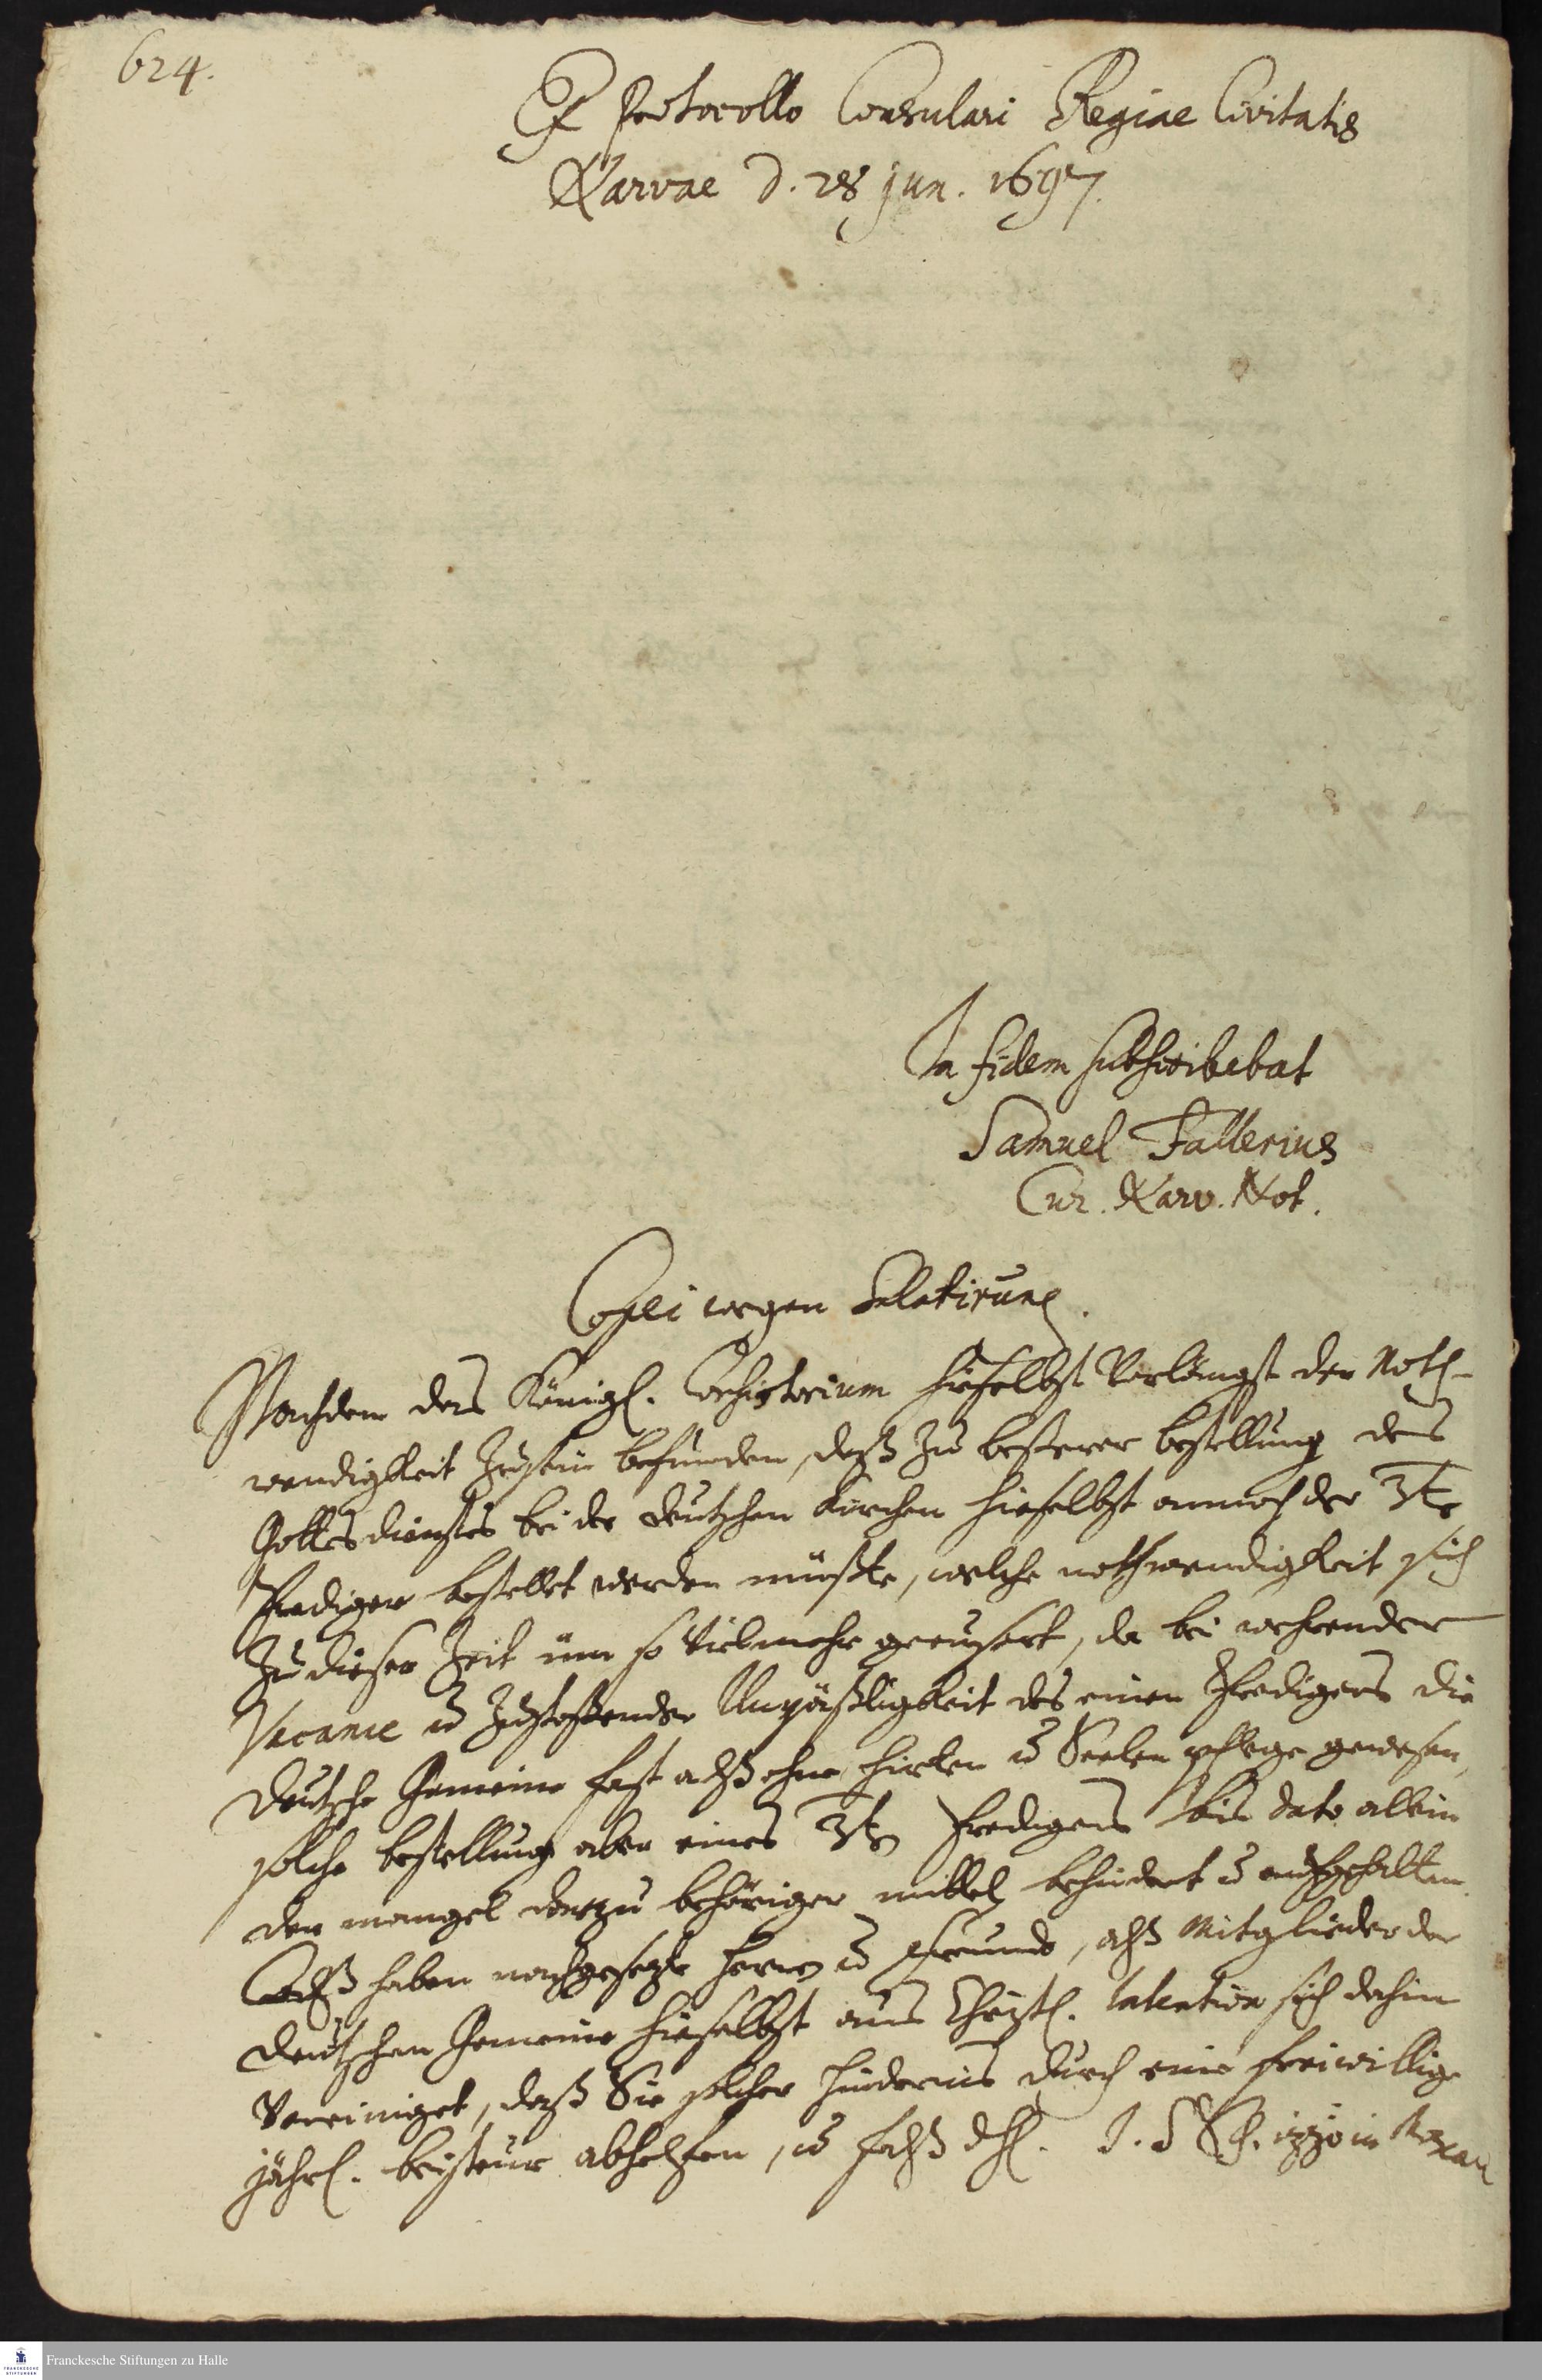 624.
Ex Protocollo Consulari Regiae Civitatis
Narvae d. 28 jun. 1697.
In fidem subscribebat
Samuel Fallerius
Cur. Narv. Not.
Copei wegen Salarirung.
Nachdem das Königl. Consistorium hieselbst Vorlängst der Noth-
wendigkeit Zuseyn befunden, daß zu besserer bestellung des
Gottesdienstes bei der deutschen Kirchen hieselbst annoch der 3te
Prediger bestellet werden müste, welche nothwendigkeit sich
Zu dieser Zeit üm so vielmehr geeusert, da bei wehrender
Vacance u Zustossender Unpäßligkeit des einen Predigers die
deutsche Gemeine fast alß ohne Hirten u Seelen pflege gewesen,
solche bestellung aber eines 3ten Predigers bis dato allein
der mangel darzu behöriger mittel behindert u aufgehalten.
Alß haben nachgesezte Herren u Freunde, alß Mitglieder der
deutschen Gemeine hieselbst aus Christl. Intention sich dahin
Vereiniget, daß Sie solcher Hindernis durch eine freiwillige
jährl. beisteur abhelfen, u falß